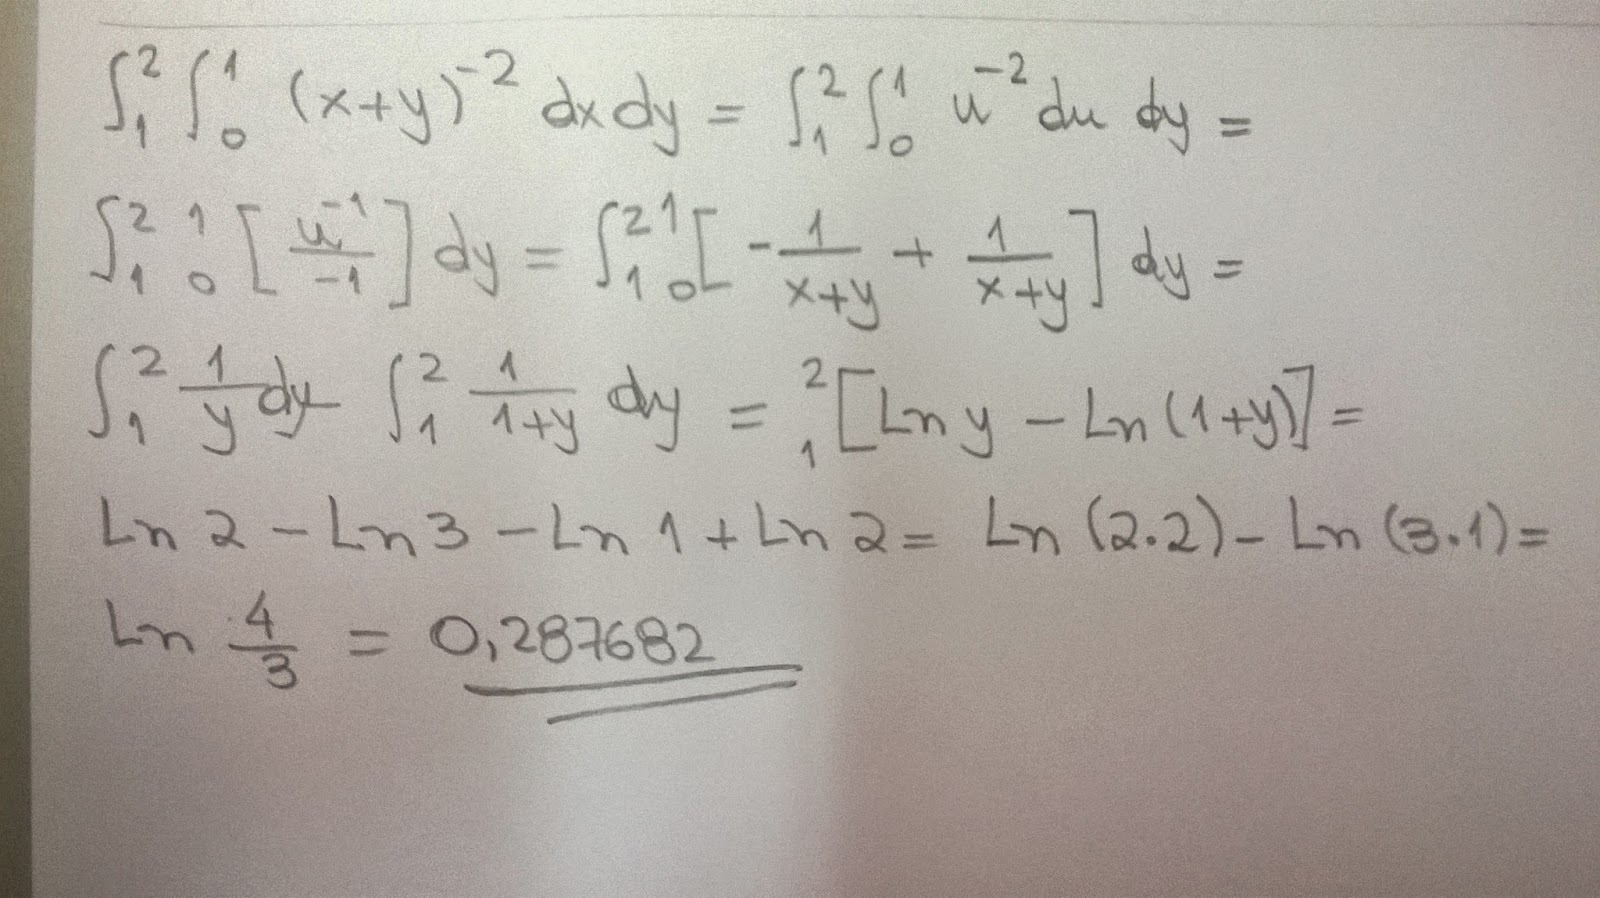 ∫₁² ∫₀¹ (x+y)⁻² dx dy = ∫₁² ∫₀¹ u⁻² du dy =
∫₁² ₀¹[u⁻¹/-1] dy = ∫₁² ₀¹[-1/(x+y) + 1/(x+y)] dy =
∫₁² 1/y dy ∫₁² 1/(1+y) dy = ₁²[Ln y - Ln (1+y)] =
Ln 2 - Ln 3 - Ln 1 + Ln 2 = Ln (2·2) - Ln (3·1) =
Ln 4/3 = 0,287682